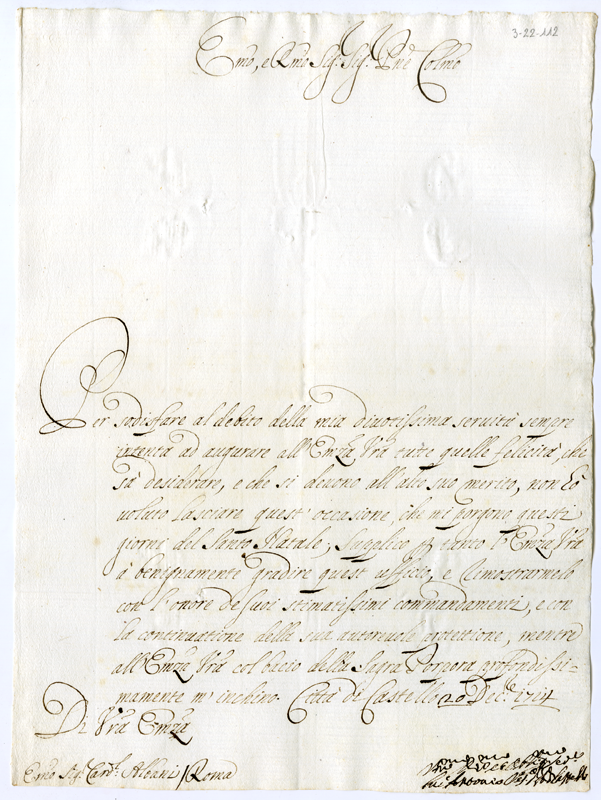 3-22-112
Emo, e Rmo Sig: Sig: Pne Colmo
Per sodisfare al debito della mia divotissima servitù sempre
intenta ad augurare all'Emza Vra tutte quelle felicità, che
sà desiderare, e che si devono all'alto suo merito, non hò
voluto lasciare quest'occasione, che mi porgono questi
giorni del Santo Natale; Supplico p tanto l'Emza Vra
à benignamente gradire quest'uffitio, e dimostrarmelo
con l'onore de suoi stimatissimi commandamenti, e con
la continuatione della sua autorevole protettione, mentre
all'Emza Vra col bacio della Sagra Porpora profondissi-
mamente m'inchino. Città di Castello 20 Dec.e 1714
Di Vra Emza
Emo Sig: Card: Albani / Roma